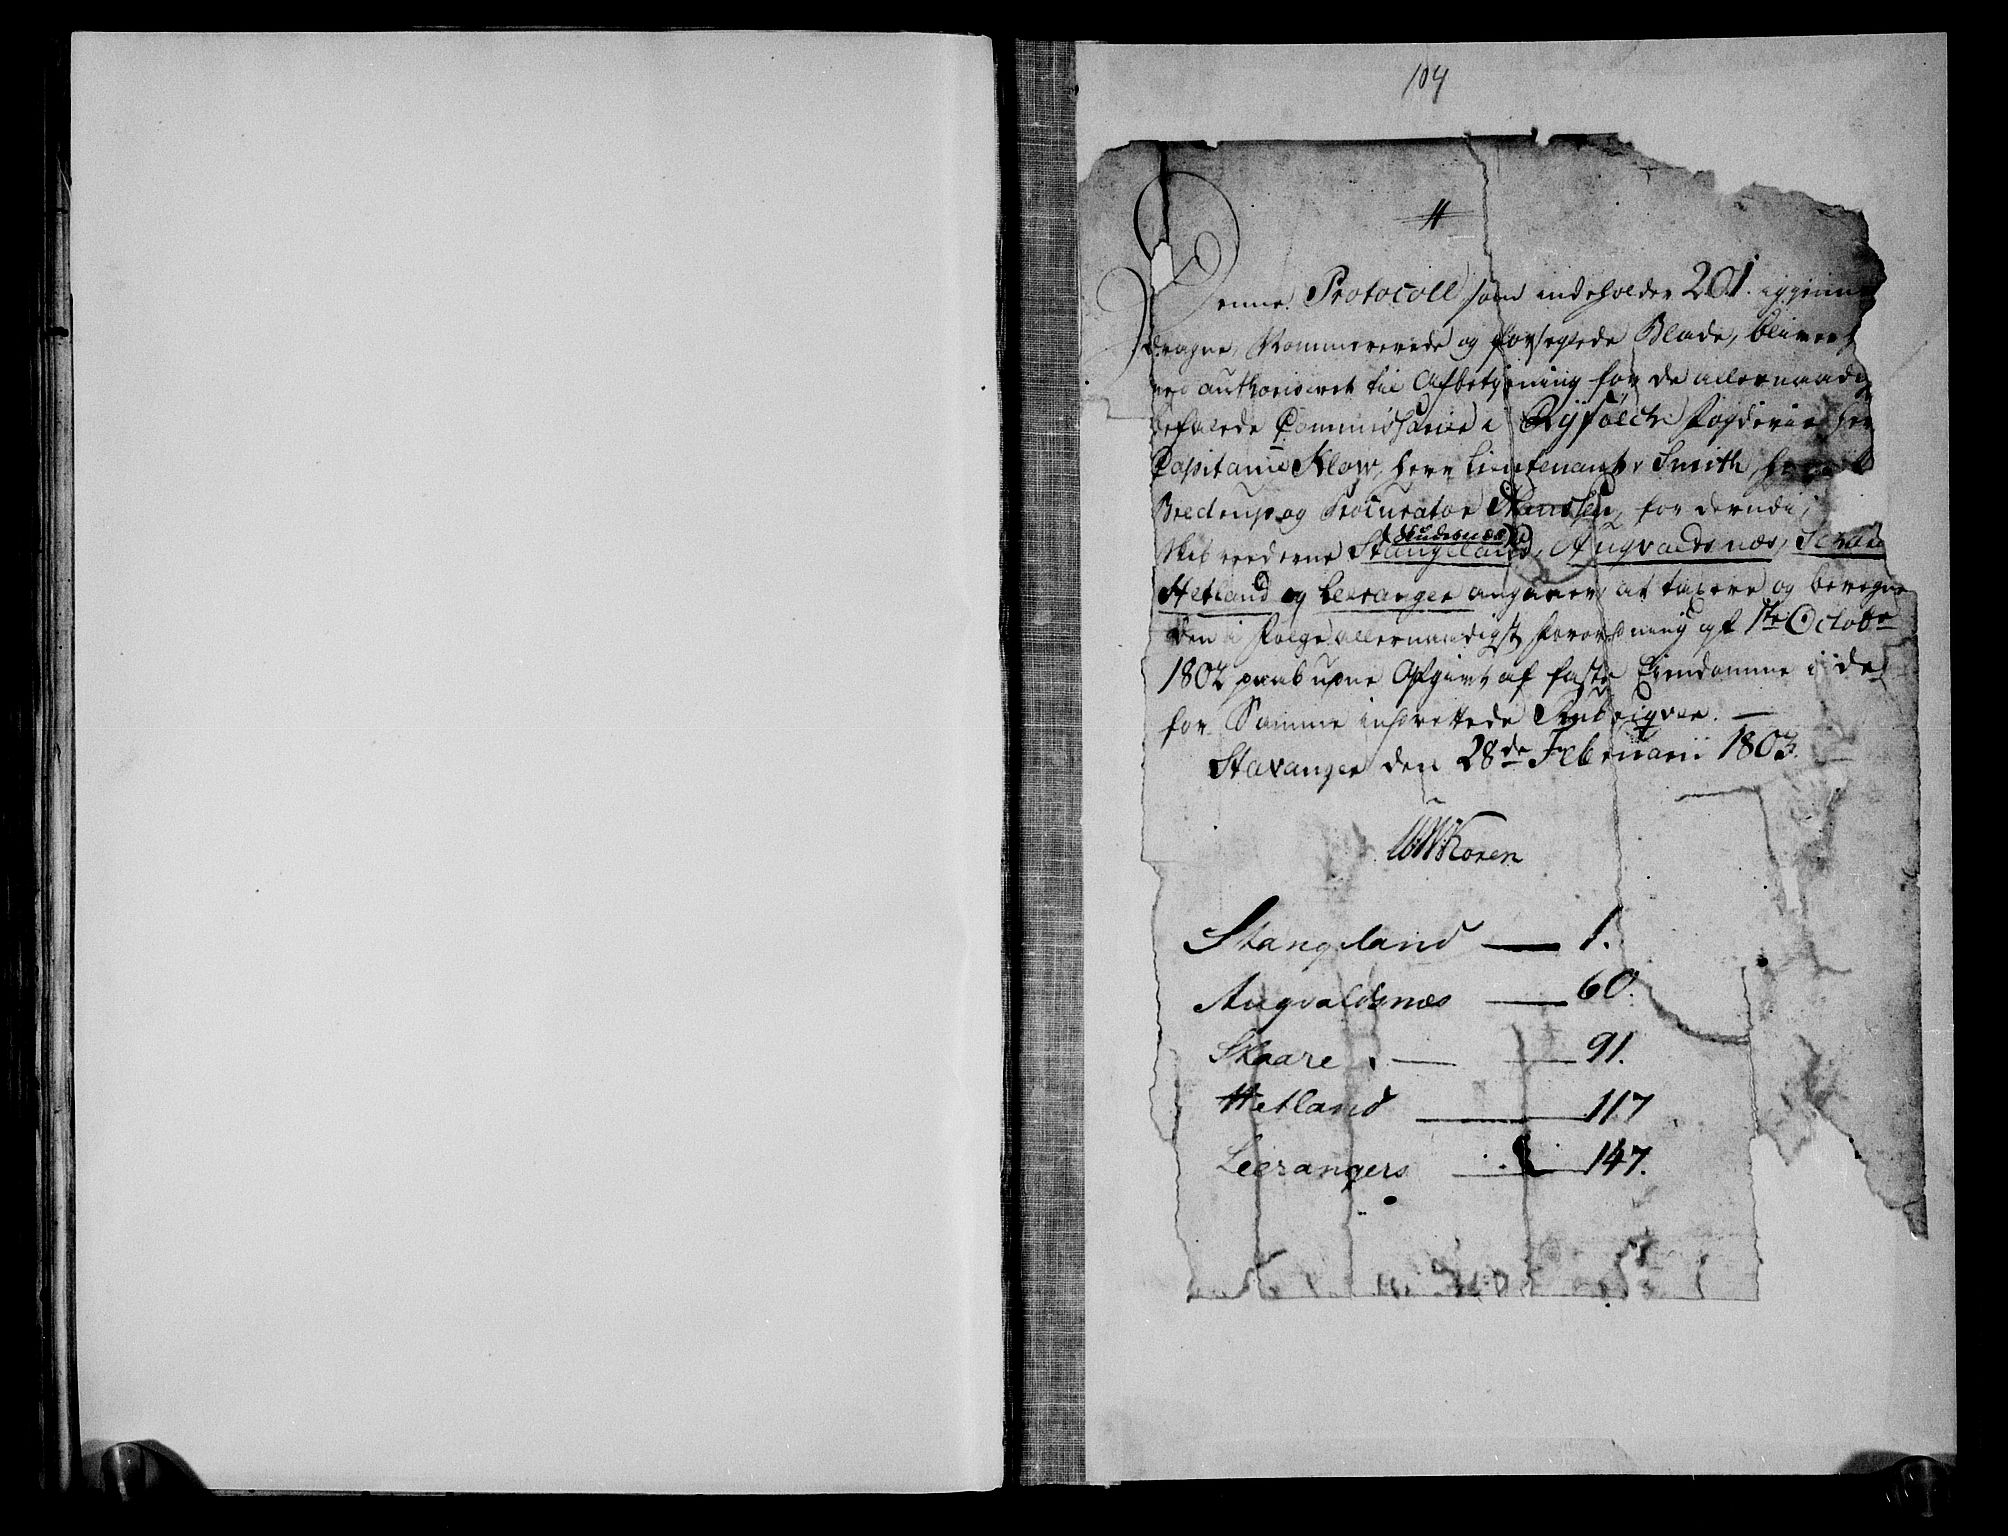 104
Denne Protocoll som indeholder 201 igjennem
dragne, Nommererede og forseglede Blade, bliver
ved authoriseret til Afbetjening for de allernaadigst
befalede Commissarier i Ryfölche Fogderie Herr
Capitaine Klow, Herr Lieutenant Smith, Herr
Bredrup og Procurator Hanssen, for de udi
Skibrederne Stangeland, (Skudesnæs) Augvaldsnæs, Schaare
Hetland og Leeranger angaaer, at taxere og beregne
den i Følge allernaadigst Forordning af 1ste Octobr
1802 paabudne Afgivt af faste Eiendomme i de
for Samme indrettede Rubriqver. —
Stavanger den 28de Februarii 1803.
Koren
Stangeland — 1.
Augvaldsnæs — 60.
Skaare — 91.
Hetland — 117
Leerangers — 147.